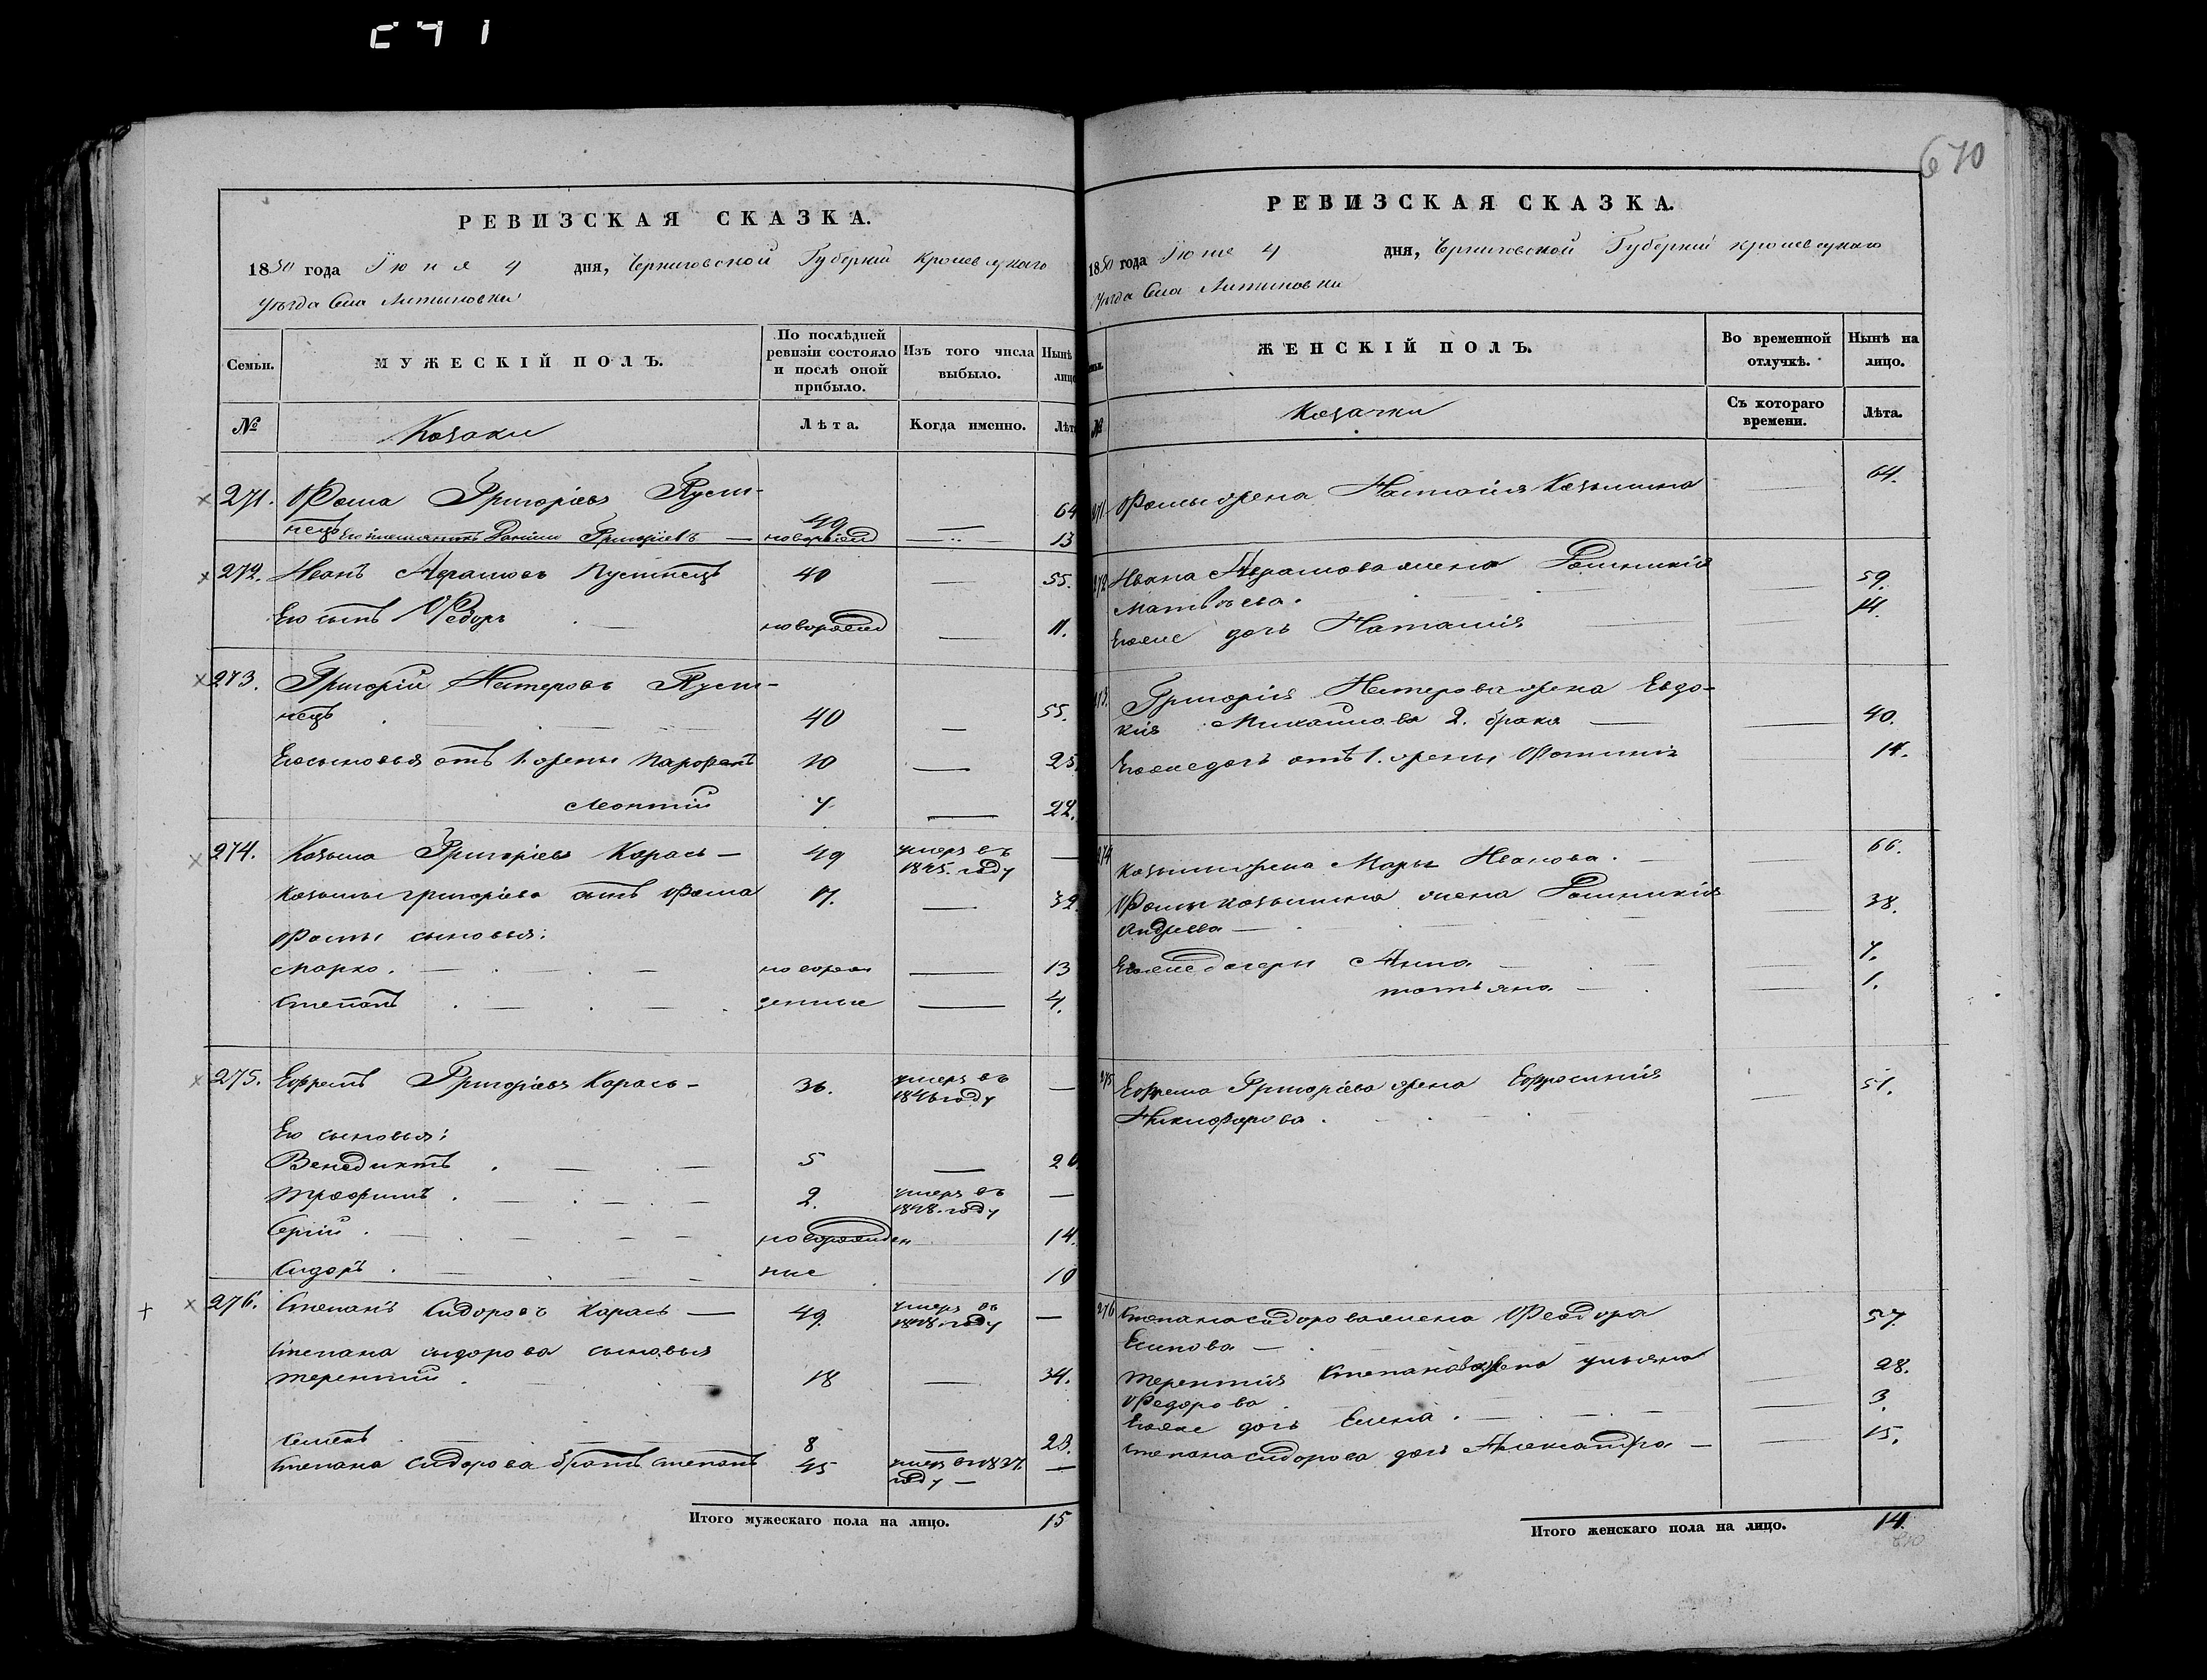 670
РЕВИЗСКАЯ СКАЗКА.
1850 года Июня 4 дня, Черниговской Губернии Кролевецкаго
Уезда Села Литвиновки
Семьи.
МУЖЕСКІЙ ПОЛЪ.
По послѣдней ревизіи состояло и послѣ оной прибыло.
Изъ того числа выбыло.
Нынѣ
лицо
№
Козаки
Лѣта.
Когда именно.
Лѣта
271. Фома Григоріевъ Пуст-
нецъ 49 — 64
его племянникъ Даніилъ Григоріевъ — новорожд — 13
272. Иванъ Абрамовъ Пустнецъ 40 — 55.
Его сынъ Федоръ — новорожд — 11.
273. Григорій Нестеровъ Пуст-
нецъ 40 — 55.
Его сыновья отъ 1. жены Парфенъ 10 — 25.
Леонтій 7 — 22.
274. Козьма Григоріевъ Карась — 49 умеръ въ 1845. году —
Козьмы Григоріева сынъ Фома 17. — 32
Фомы сыновья:
Марко. — новорож — 13
Степанъ — денные — 4.
275. Ефремъ Григоріевъ Карась — 36. умеръ въ 1846 году —
Его сыновья:
Венедиктъ — 5 — 20
Трофимъ — 2. умеръ въ 1848. году —
Сергій — новорожден 14.
Сидоръ — ные 10
276. Степанъ Сидоровъ Карась — 49. умеръ въ 1848. году —
Степана Сидорова сыновья
Терентій 18 — 34.
Семенъ 8 — 23.
Степана Сидорова братъ Степанъ 45 умеръ въ 1837. году — —
Итого мужескаго пола на лицо. 15
РЕВИЗСКАЯ СКАЗКА.
1850 года Июня 4 дня, Черниговской Губерніи Кролевецкаго
Уезда Села Литвиновки
ЖЕНСКІЙ ПОЛЪ.
Во временной отлучкѣ.
Нынѣ на лицо.
№
Козачки
Съ котораго времени.
Лѣта.
271 Фомы жена Наталія Козьмина — 64.
272 Ивана Абрамова жена
Матвѣева. — 59.
Его же дочь Наталія — 14.
273. Григорія Нестерова жена Евдо-
кия Михайлова 2. брака — 40.
Его же дочь отъ 1. жены Фотинія — 14.
274 Козьмы жена Марья Иванова. — 66.
Фомы Козьмина жена
Андреева — 38.
Его же дочери Анна — 7.
Татьяна — 1.
275 Ефрема Григоріева жена Ефросинія
Никифорова — 51.
276 Степана Сидорова жена Феодора
Есипова — 57
Терентія Степанова жена Ульяна
Федорова — 28.
Его же дочь Елена. — 3
Степана Сидорова дочь Александра — 15.
Итого женскаго пола на лицо. 14.